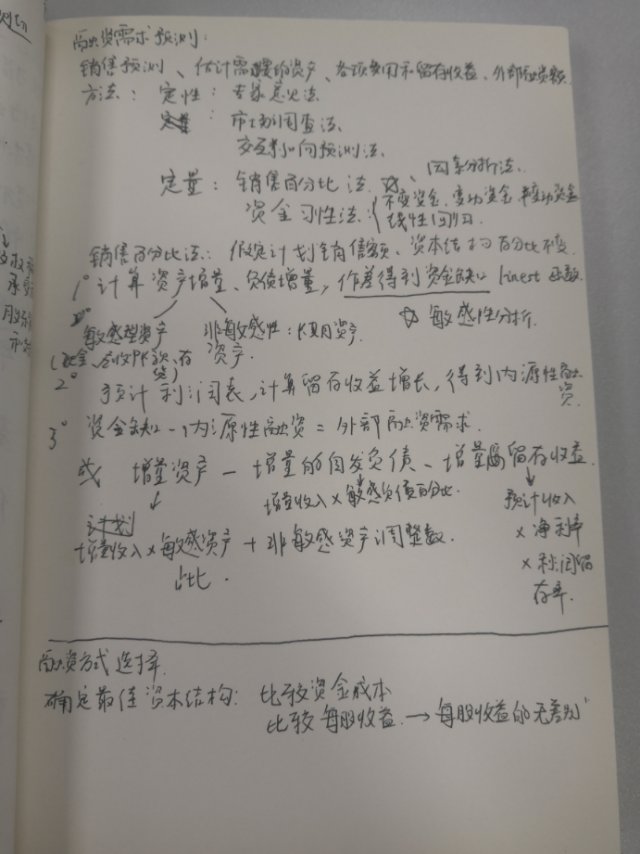 融资需求预测:
销售预测、估计需要的资产、各项费用和留存收益、外部融资额.
方法: 定性: 专家意见法
: 市场调查法.
交互影响预测法.
定量: 销售百分比法 、因素分析法.
资金习性法: 不变资金、变动资金、半变动资金
线性回归
销售百分比法: 假定计划销售额、资本结构百分比不变.
1° 计算资产增量、负债增量, 作差得到资金缺口 linest 函数.
敏感型资产 非敏感性: 长期资产 ☆ 敏感性分析.
(现金、应收账款、存货) 资产.
2° 预计利润表, 计算留存收益增长, 得到内源性融资
3° 资金缺口 - 内源性融资 = 外部融资需求.
或 增量资产 - 增量的自发负债 - 增量留存收益.
↓ 增量收入×敏感负债百分比. 预计收入
增量收入×敏感资产 + 非敏感资产调整数. ×净利率
占比. ×利润留
存率.
融资方式选择
确定最佳资本结构: 比较资金成本
比较每股收益. → 每股收益的无差别